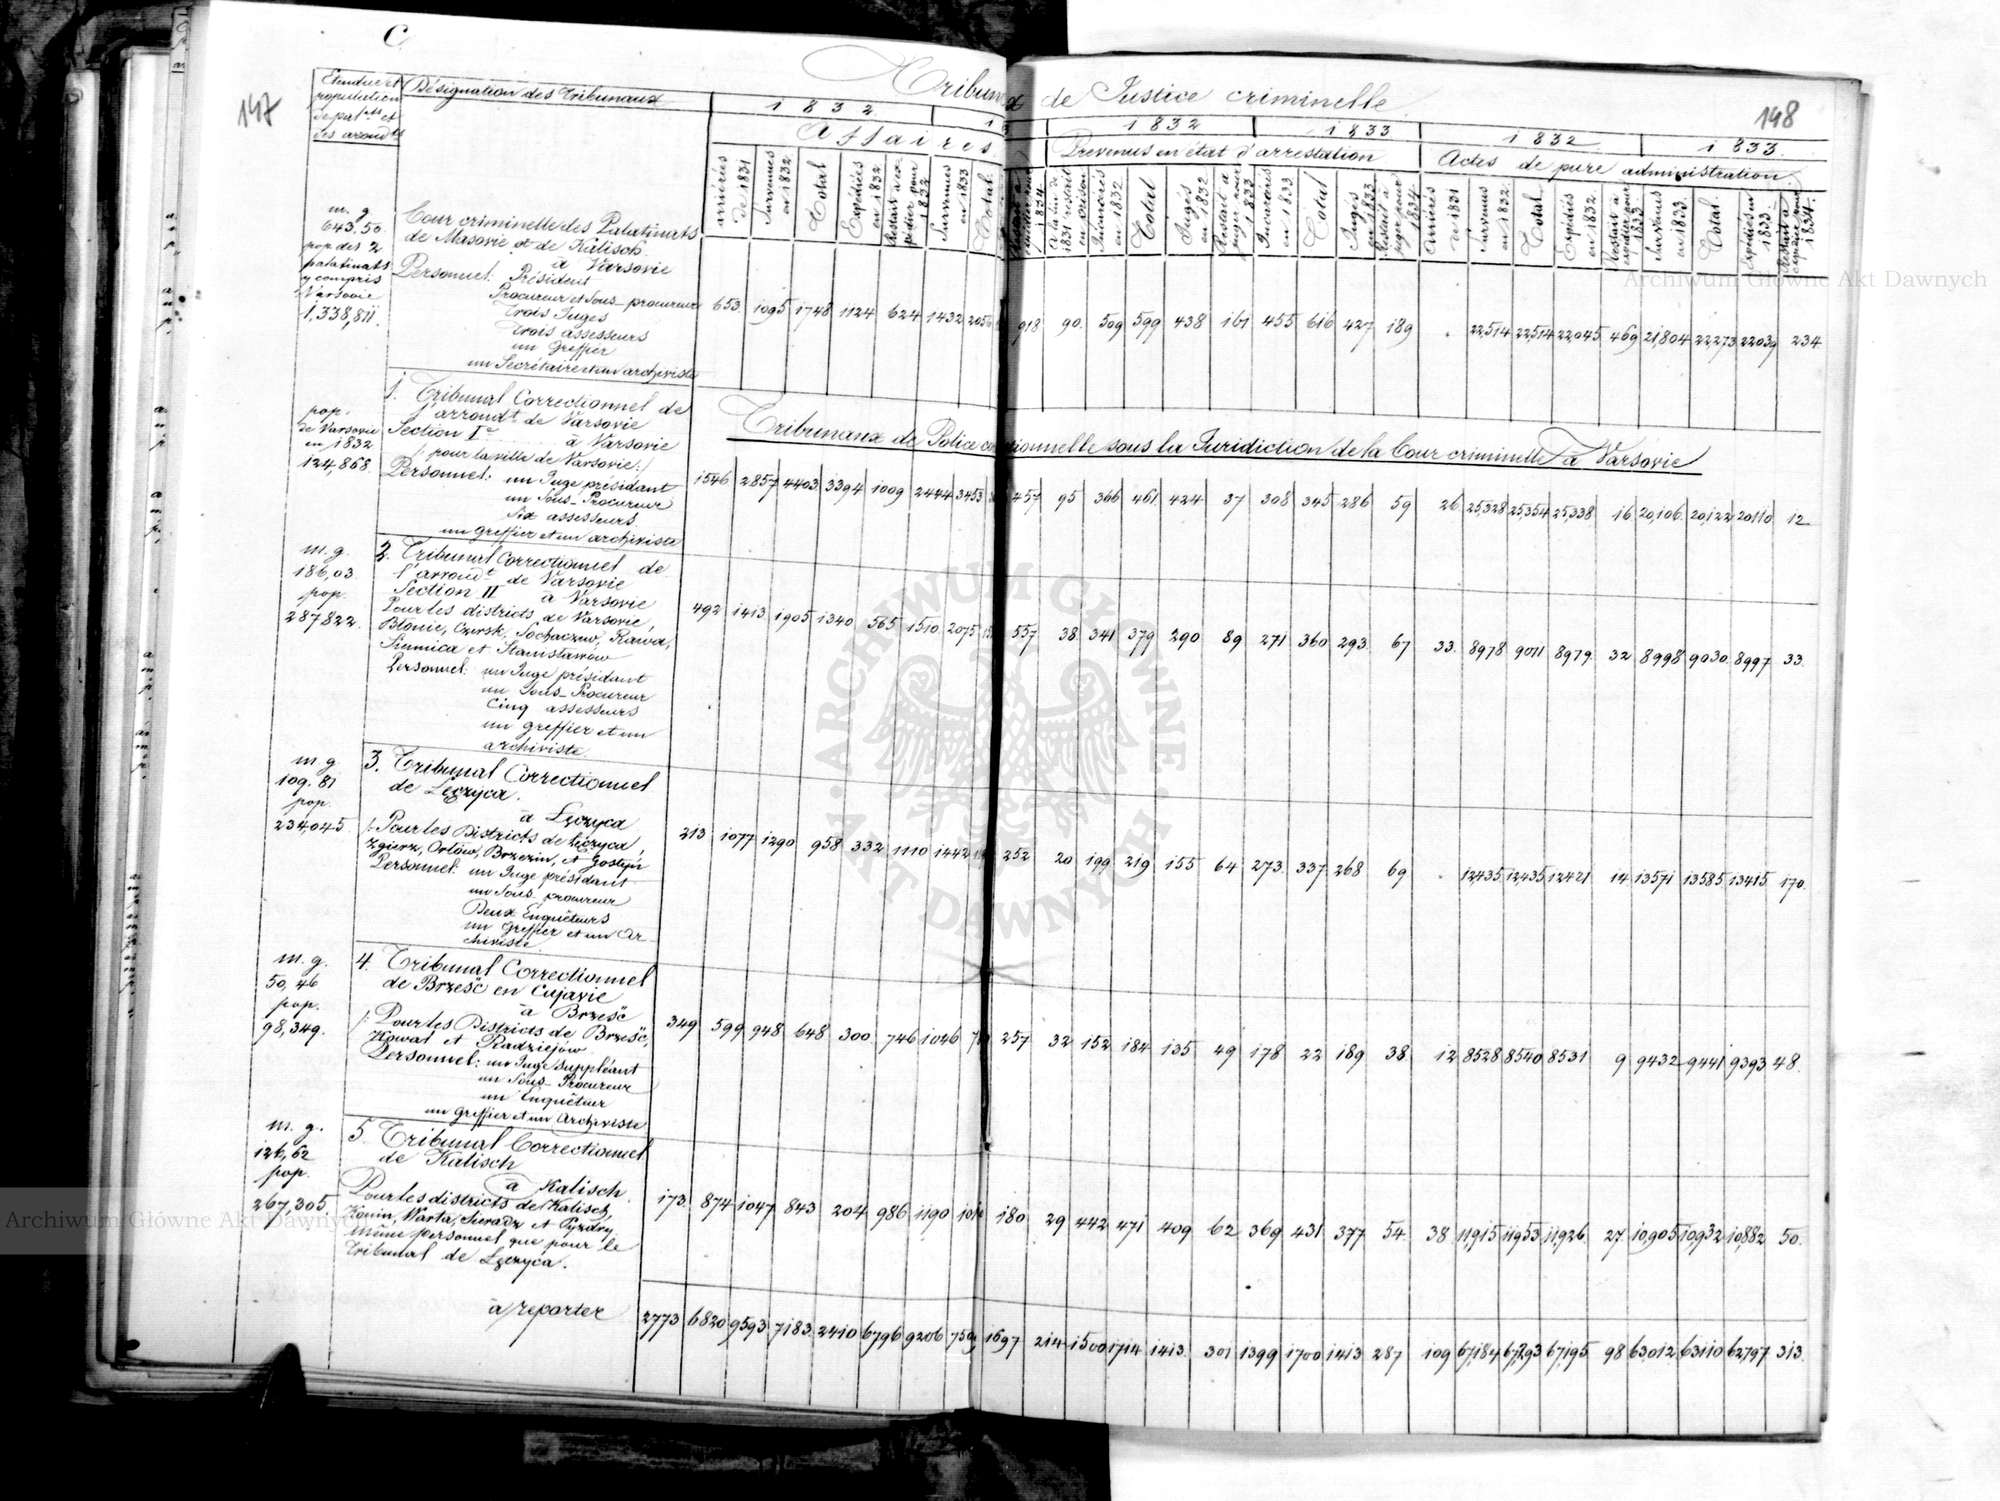 C
147
148
Tribunaux de Justice criminelle
Etendue et population
de part. et
des arondts
Désignation des Tribunaux
1832
1832
1833
1832
1833.
Affaires
Prevenus en état d'arrestation
Actes de pure administration
arriérées de 1831
Survenues en 1832
Total
Expédiées en 1832
Survenues en 1833
Total
Incarcérés en 1832
Total
Jugés en 1832
Restait à juger pour 1833
Incarcérés en 1833
Total
Jugés en 1833
Restait à juger pour 1834
Arriérés de 1831
Survenus en 1832
Total
Expédiés en 1832
Restait à expédier pour 1833
Survenus en 1833.
Total.
Expédiés en 1833
Restait à expédier pour 1834.
m. g.
643.50.
pop. des 2
palatinats
y compris
Varsovie
1,338,811.
Cour criminelle des Palatinats
de Masovie et de Kalisch.
à Varsovie
Personnel: Président
Procureur et Sous-procureur
Trois Juges
Trois assesseurs
un Greffier
un Secrétaire et un archiviste
653. 1095 1748 1124 624 1432 2056 918 90. 509 599 438 161 455 616 427 189 . 22,514 22,514 22,045 469 21,804 22,273 22039 234
Tribunaux de Police correctionnelle sous la Juridiction de la Cour criminelle à Varsovie
pop.
de Varsovie
en 1832
124,868.
1. Tribunal Correctionnel de
l'arrondt de Varsovie
Section Ie à Varsovie
/ pour la ville de Varsovie:/
Personnel: un Juge présidant
un Sous-Procureur
Six assesseurs.
un greffier et un archiviste
1546 2857 4403 3394 1009 2444 3453 457 95 366 461. 424 37 308 345 286 59 26 25,328 25,354 25,338 16 20,106. 20,122 20110 12
m. g.
186,03.
pop.
287822.
2. Tribunal Correctionnel de
l'arrondt de Varsovie
Section II à Varsovie
Pour les districts de Varsovie,
Błonie, Czersk, Sochaczew, Rawa,
Siennica et Stanisławów
Personnel: un Juge présidant
un Sous-Procureur
Cinq assesseurs
un greffier et un
archiviste
492 1413 1905 1340 565 1510. 2075 557 38 341 379 290 89 271 360 293. 67 33. 8978 9011 8979. 32 8998 9030. 8997 33.
m. g.
109.81
pop.
234,045.
3. Tribunal Correctionnel
de Łęczyca.
à Łęczyca
/: Pour les Districts de Łęczyca,
Zgierz, Orłów, Brzezin, et Gostyń
Personnel: un Juge présidant
un Sous-procureur
Deux Enquêteurs
un greffier et un Ar-
chiviste
213 1077 1290 958 332 1110 1442 252 20 199 219 155 64 273. 337 268 69 . 12,435 12,435 12421 14 13571 13585 13415 170.
m. g.
50,46
pop.
98,349.
4. Tribunal Correctionnel
de Brześć en Cujavie
à Brześć
/: Pour les Districts de Brześć,
Kowal et Radziejów
Personnel: un Juge suppléant
un Sous-Procureur
un Enquêteur
un greffier et un Archiviste
349 599 948 648 300 746 1046 257 32 152 184 135 49 178 22 189 38. 12 8528 8540 8531 9 9432 9441 9393 48.
m. g.
126,62
pop.
267,305.
5. Tribunal Correctionnel
de Kalisch
à Kalisch.
Pour les districts de Kalisch,
Konin, Warta, Sieradz et Pyzdry
même personnel que pour le
Tribunal de Łęczyca.
173. 874 1047 843 204 986 1190 1010 180 29 442 471 409 62 369 431 377 54. 38 11,915 11,953 11,926. 27. 10,905 10,932 10,882 50.
à reporter
2773 6820 9593 7183. 2410 6796 9206 759 1697 214 1500 1714 1413. 301 1399 1700 1413 287 109 67,184 67,293 67,195 98 63,012 63110 62,797 313.
Archiwum Główne Akt Dawnych
Archiwum Główne Akt Dawnych
ARCHIWUM GŁÓWNE AKT DAWNYCH